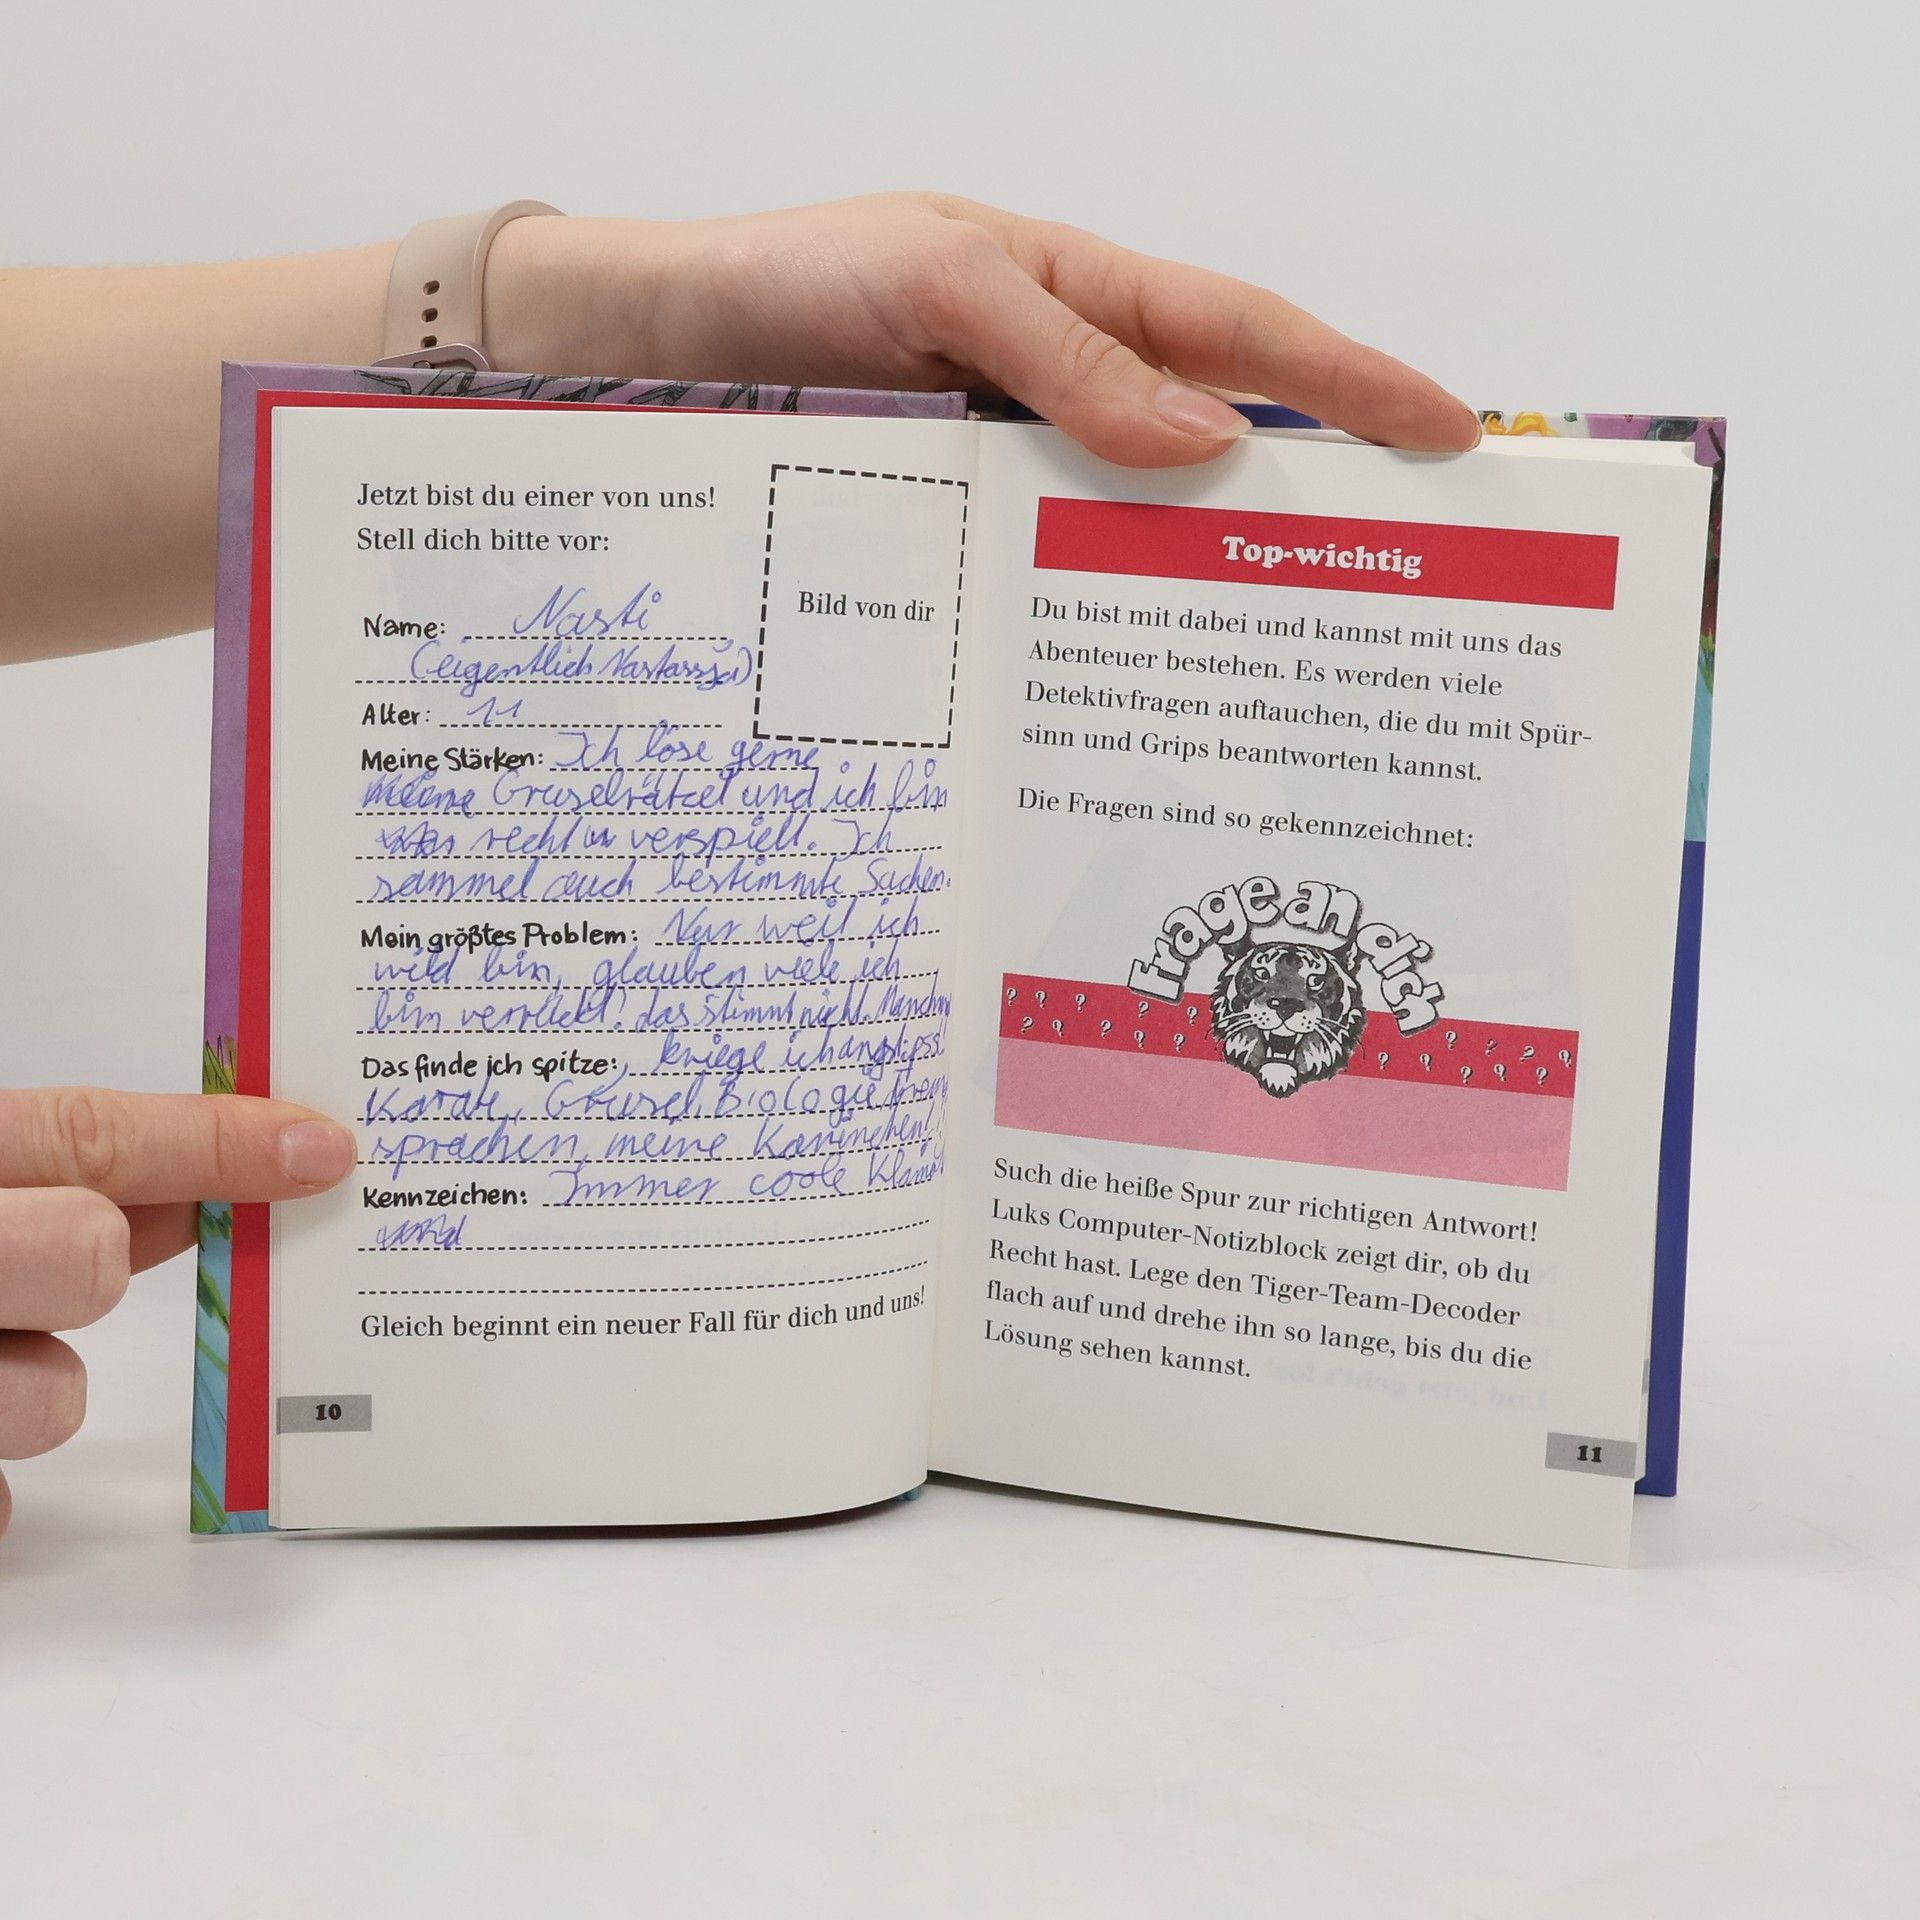 Jetzt bist du einer von uns!
Stell dich bitte vor:
Bild von dir
Name: Nasti
(eigentlich Nastassja)
Alter: 11
Meine Stärken: Ich löse gerne
Gruselrätzel und ich bin
recht verspielt. Ich
sammel auch bestimmte Sachen.
Mein größtes Problem: Nur weil ich
wild bin, glauben viele ich
bin verrückt! das stimmt nicht. Manchmal
kriege ich angst
Das finde ich spitze:
Karate, Grusel, Biologie,
sprachen, meine Kaninchen!
Kennzeichen: Immer coole
Gleich beginnt ein neuer Fall für dich und uns!
10
Top-wichtig
Du bist mit dabei und kannst mit uns das
Abenteuer bestehen. Es werden viele
Detektivfragen auftauchen, die du mit Spür-
sinn und Grips beantworten kannst.
Die Fragen sind so gekennzeichnet:
Frage an dich
Such die heiße Spur zur richtigen Antwort!
Luks Computer-Notizblock zeigt dir, ob du
Recht hast. Lege den Tiger-Team-Decoder
flach auf und drehe ihn so lange, bis du die
Lösung sehen kannst.
11